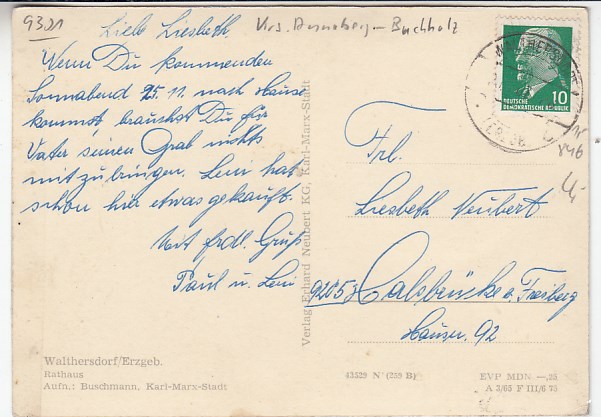 9321
Krs. Annaberg-Buchholz
Liebe Liesbeth,
Wenn Du kommenden
Sonnabend 25.11. nach Hause
kommst, brauchst Du für
Vater seinen Grab nichts
mitzubringen. Leni hat
schon hier etwas gekauft.
Mit frdl. Gruß
Paul u. Leni
Walthersdorf/Erzgeb.
Rathaus
Aufn.: Buschmann, Karl-Marx-Stadt
Verlag Erhard Neubert KG, Karl-Marx-Stadt
DEUTSCHE
DEMOKRATISCHE REPUBLIK
10
846
Frl.
Liesbeth Neubert
9205 Halsbrücke b. Freiberg
Hausnr. 92
43529 N° (259 B)
EVP MDN —,25
A 3/65 F III/6 75